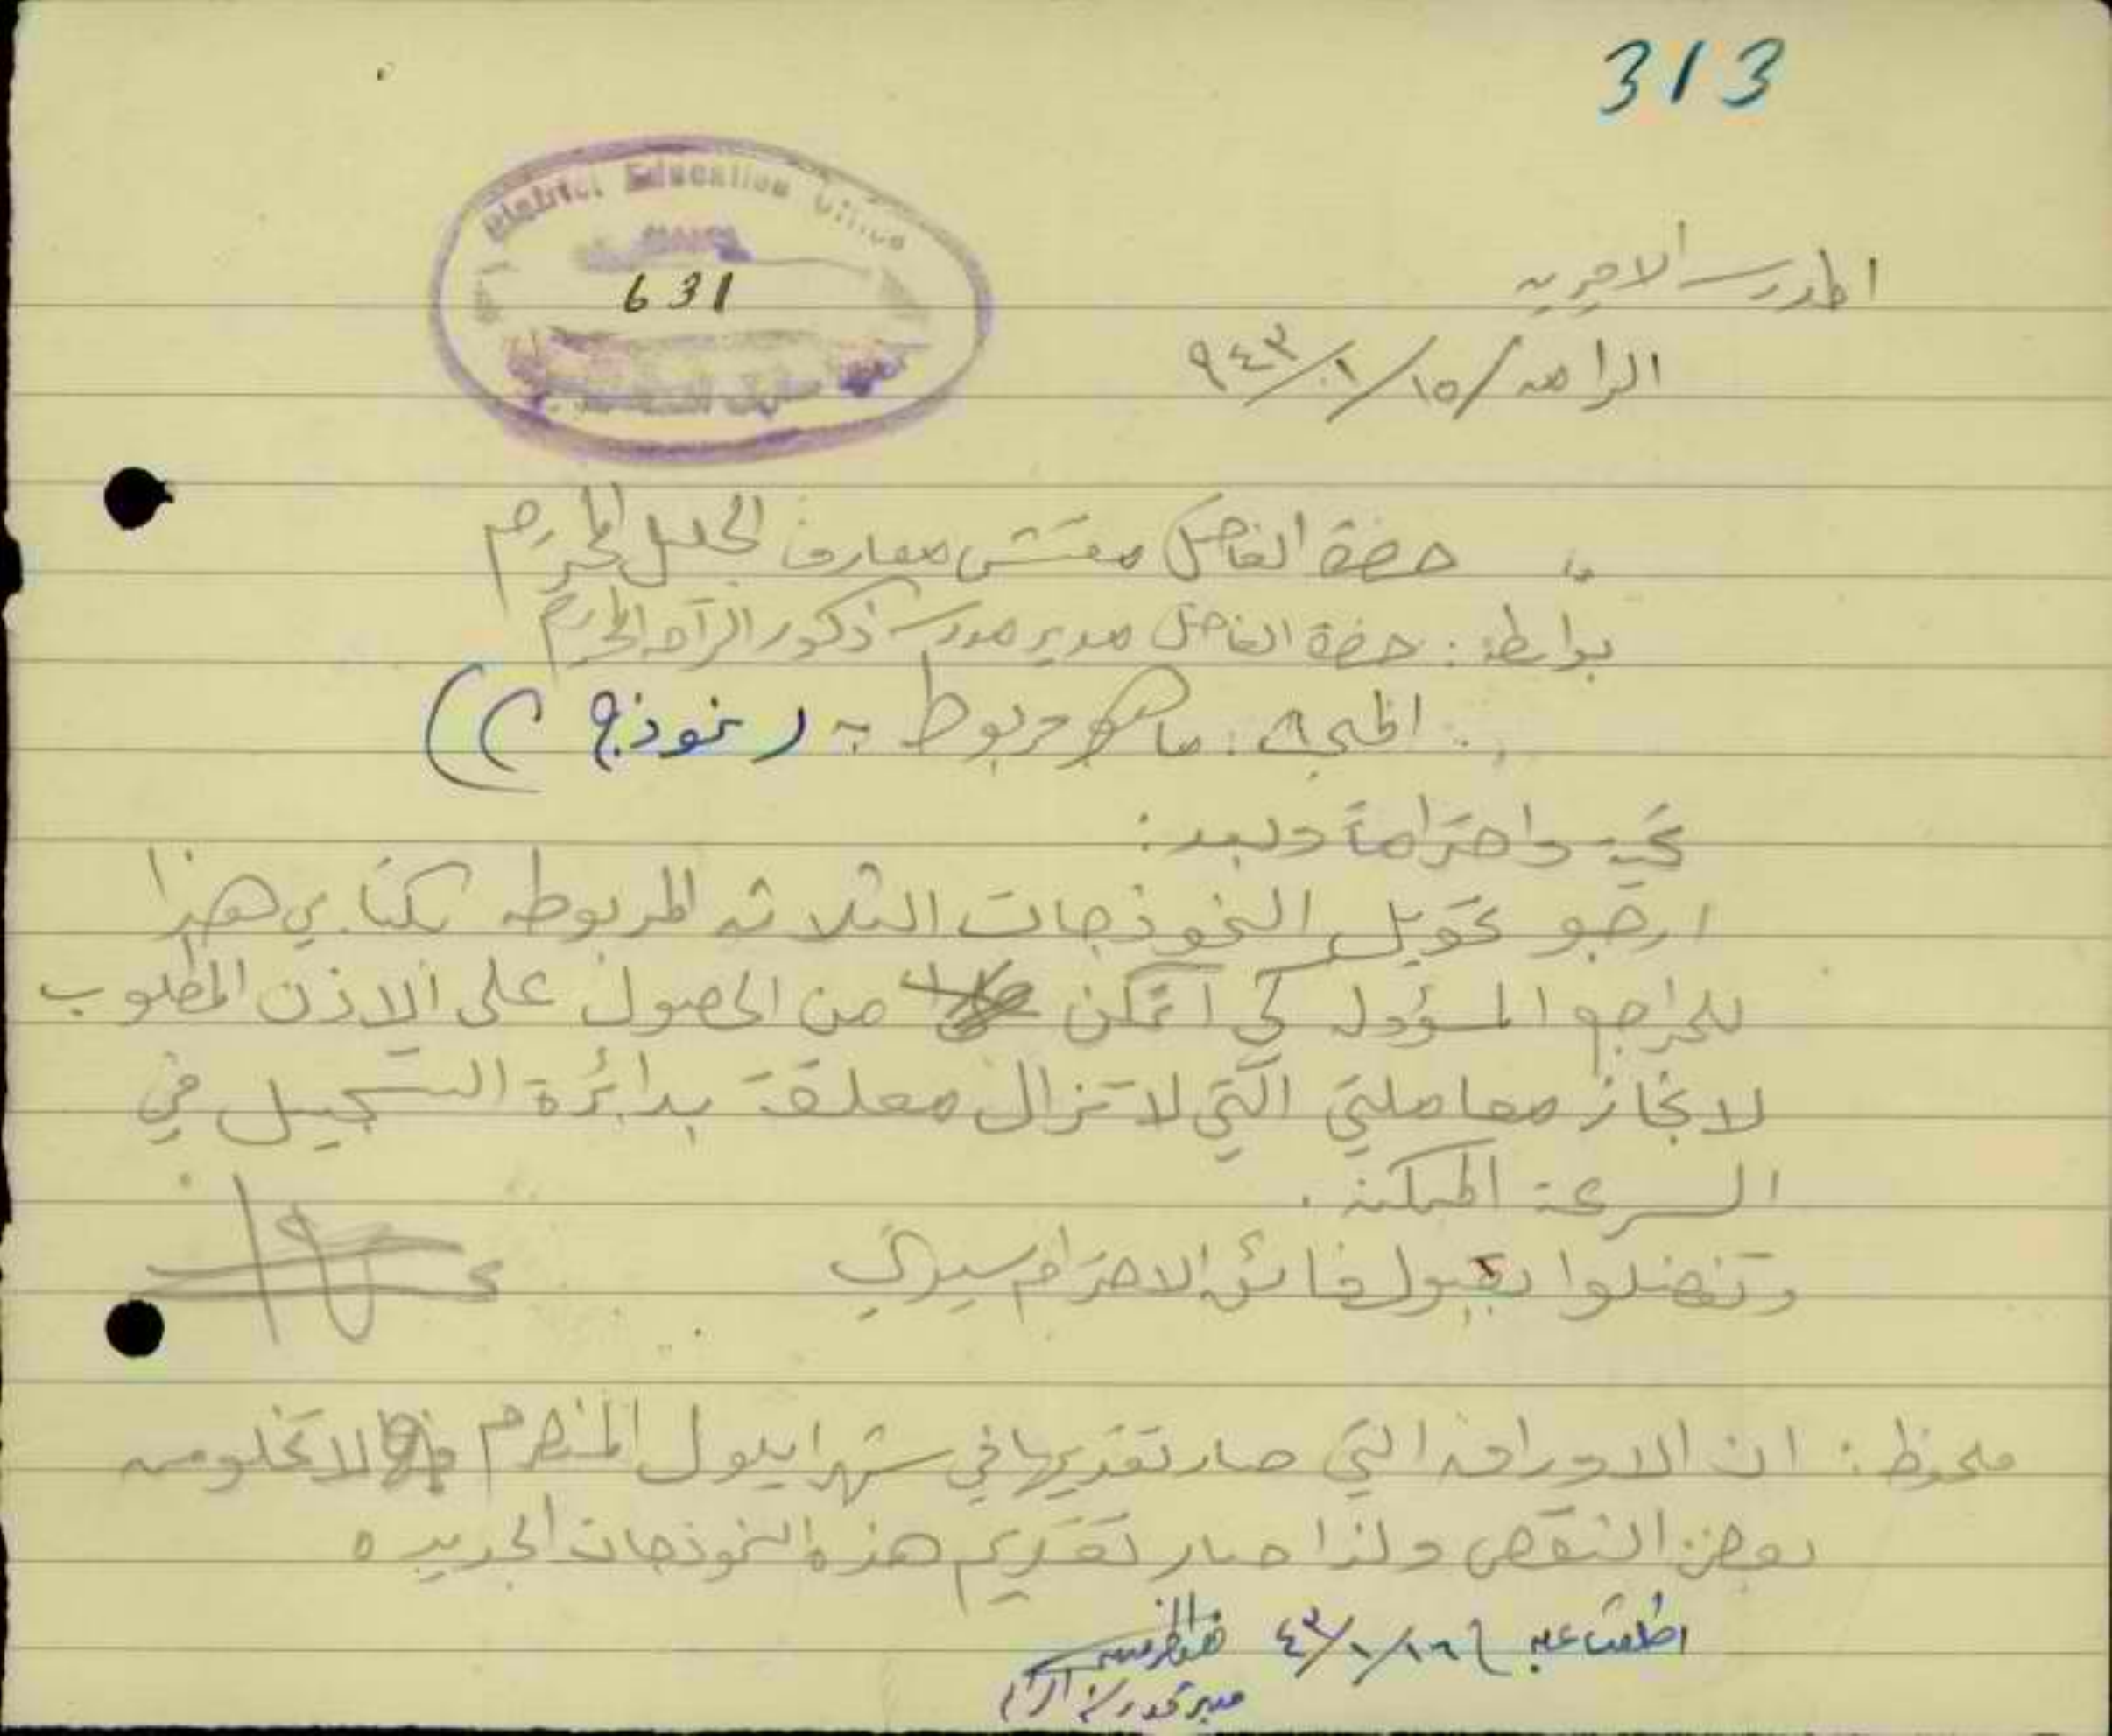 313
District Education Office
631
المدرسة الاميرية
الرامه / ١٥ / ١ / ٩٤٣
حضرة الفاضل مفتش معارف الجليل المحترم
بواسطة : حضرة الفاضل مدير مدرسة ذكور الرامه المحترم
ما هو مربوط به ( نموذج
تحية واحتراماً وبعد :
ارجو تحويل النموذجات الثلاثه المربوطه بكتابي هذا
للمراجع المسؤوله كي اتمكن من الحصول على الاذن المطلوب
لانجاز معاملتي التي لا تزال معلقة بدائرة التسجيل في
السرعة الممكنه .
وتفضلوا بقبول فائق الاحترام سيدي
ملحوظه : ان الاوراق التي صار تقديمها في شهر ايلول المنصرم لا تخلو من
بعض النقص ولذا صار تقديم هذه النموذجات الجديده
اطلعت عليه ١٦ / ١ / ٤٣
مدير مدرسة